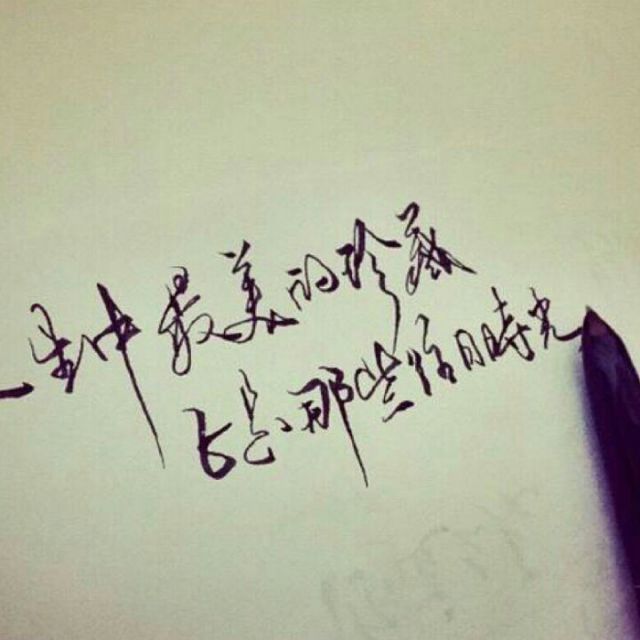 一生中最美的珍藏
正是那些往日時光